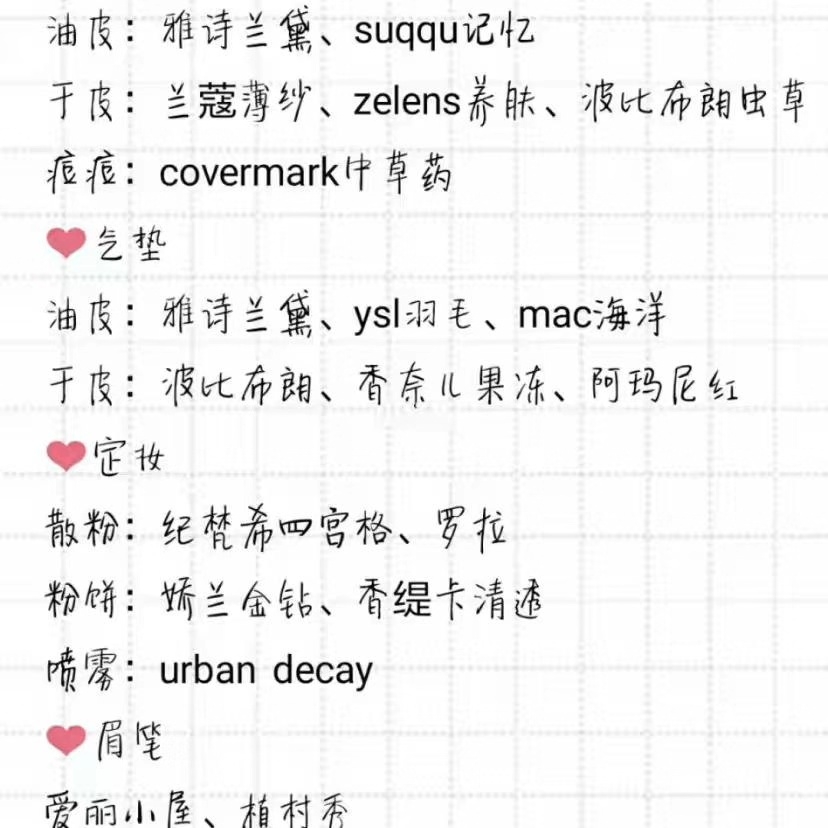 油皮：雅诗兰黛、suqqu记忆
干皮：兰蔻薄纱、zelens养肤、波比布朗虫草
痘痘：covermark中草药
❤气垫
油皮：雅诗兰黛、ysl羽毛、mac海洋
干皮：波比布朗、香奈儿果冻、阿玛尼红
❤定妆
散粉：纪梵希四宫格、罗拉
粉饼：娇兰金钻、香缇卡清透
喷雾：urban decay
❤眉笔
爱丽小屋、植村秀